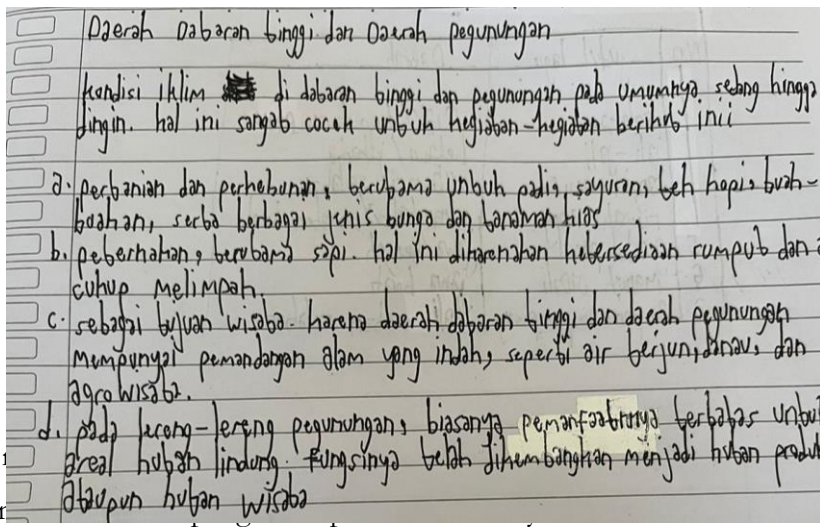 Daerah Dataran tinggi dan Daerah pegunungan
kondisi iklim di dataran tinggi dan pegunungan pada umumnya sedang hingga
dingin. hal ini sangat cocok untuk kegiatan-kegiatan berikut inii
a. pertanian dan perkebunan, terutama untuk padi, sayuran, teh kopi, buah-
buahan, serta berbagai jenis bunga dan tanaman hias
b. peterhakan, terutama sapi. hal ini dikarenakan ketersediaan rumput dan
cukup melimpah.
c. sebagai tujuan wisata. karena daerah dataran tinggi dan daerah pegunungan
mempunyai pemandangan alam yang indah, seperti air terjun, danau, dan
agrowisata.
d. pada lereng-lereng pegunungan, biasanya pemanfaatnnya terbatas untu
areal hutan lindung. fungsinya telah dikembangkan menjadi hutan produk
ataupun hutan wisata